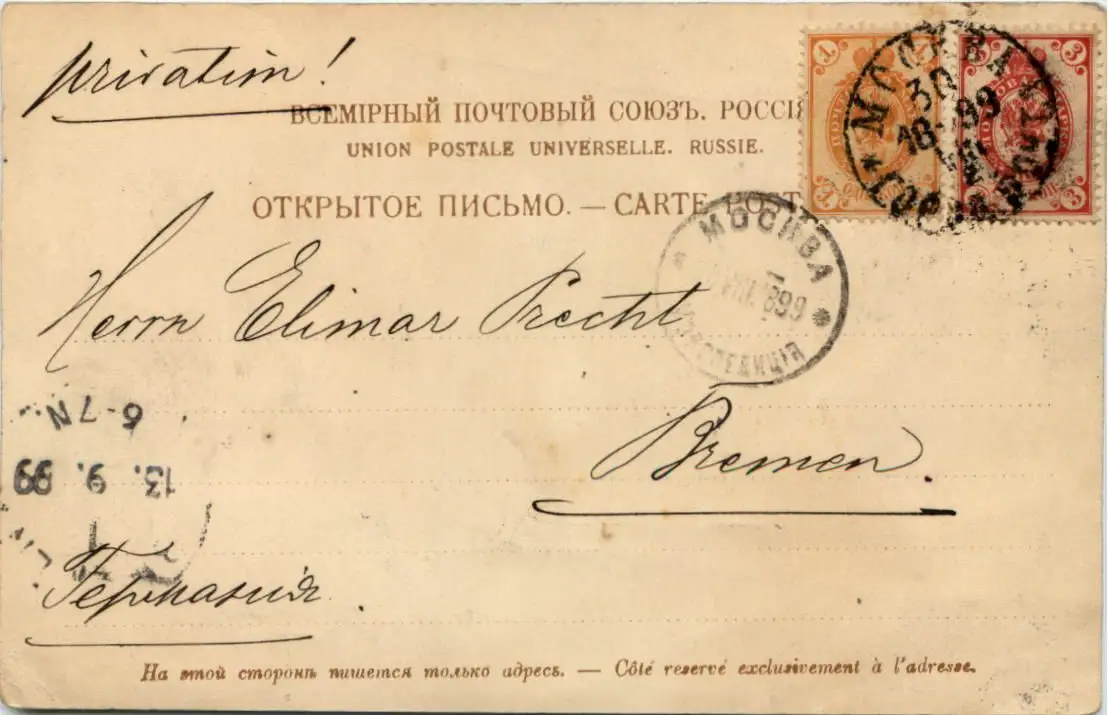 privatim!
ВСЕМІРНЫЙ ПОЧТОВЫЙ СОЮЗЪ. РОССІЯ
UNION POSTALE UNIVERSELLE. RUSSIE.
ОТКРЫТОЕ ПИСЬМО. — CARTE POST
1 1 1 1
3 3 3
МОСКВА
30
1899
МОСКВА
VIII. 1899
ЭКСПЕДИЦІЯ
Herrn Elimar Precht
Bremen.
6-7N.
13. 9. 99
Германия.
На этой сторонѣ пишется только адресъ. — Côté reservé exclusivement à l'adresse.